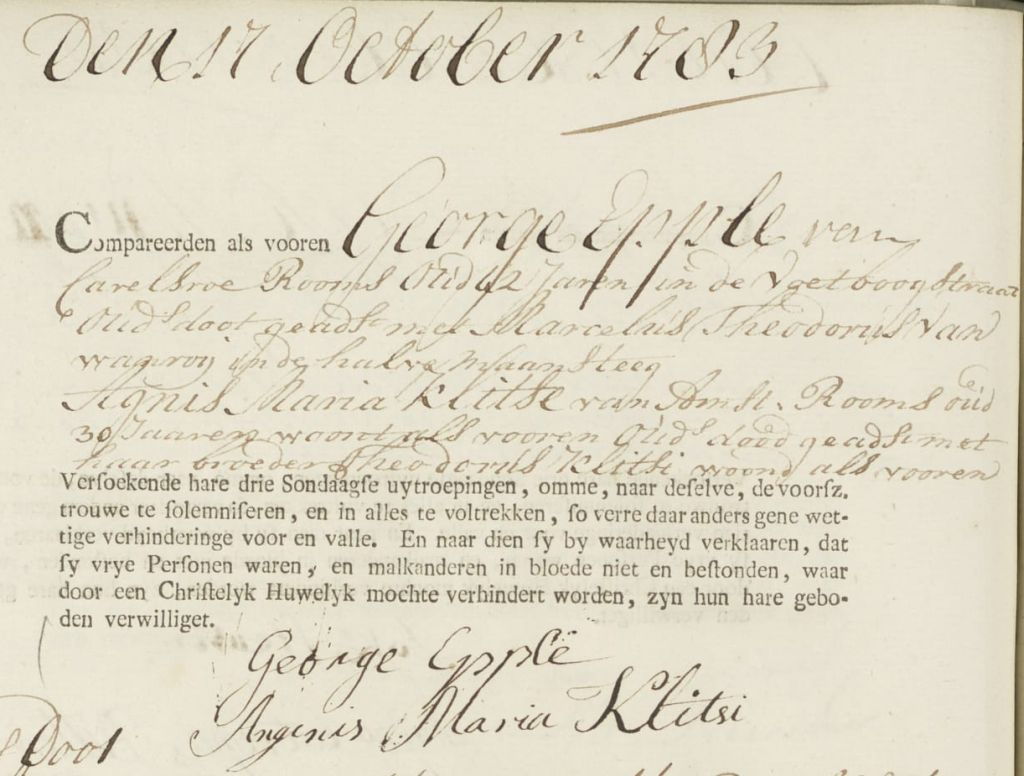 Den 17 October 1783
Compareerden als vooren George Epple van
Carelsroe Rooms Oud 42 Jaren in de Vgetboogstraat
Oud.s doot geads.t met Marcelus Theodorus Van
wanroij in de halve Maan Steeg
Agnis Maria Klitse van Amst. Rooms oud
30 Jaaren woont als vooren Oud.s dood geads.t met
haar broeder Theodorus Klitsi woond als vooren
Versoekende hare drie Sondaagse uytroepingen, omme, naar deselve, de voorsz.
trouwe te solemniseren, en in alles te voltrekken, so verre daar anders gene wet-
tige verhinderinge voor en valle. En naar dien sy by waarheyd verklaaren, dat
sy vrye Personen waren, en malkanderen in bloede niet en bestonden, waar
door een Christelyk Huwelyk mochte verhindert worden, zyn hun hare gebo-
den verwilliget.
George Epple
Angenis Maria Klitsi
Door